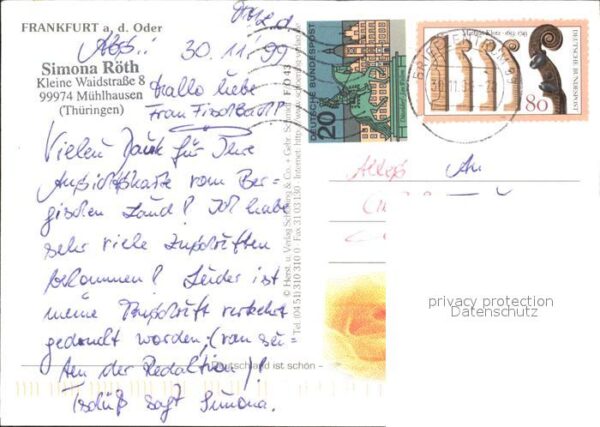 FRANKFURT a. d. Oder
Abs.:
30.11.99
Simona Röth
Kleine Waidstraße 8
99974 Mühlhausen
(Thüringen)
Hallo liebe
Frau
Vielen Dank für Ihre
Ansichtskarte vom Ber-
gischen Land! Ich habe
sehr viele Zuschriften
bekommen! Leider ist
meine Zuschrift verkehrt
gedruckt worden, (von sei-
ten der Redaktion)!
Tschüß sagt Simona.
Deutschland ist schön -
© Herst. u. Verlag Schöning & Co. + Gebr. Schmidt
Tel. (04 51) 310 310 0 Fax 31 03 130 Internet: http://www
DEUTSCHE BUNDESPOST
20
DEUTSCHE BUNDESPOST
80
BRIEFZENTRUM 99
An
privacy protection
Datenschutz